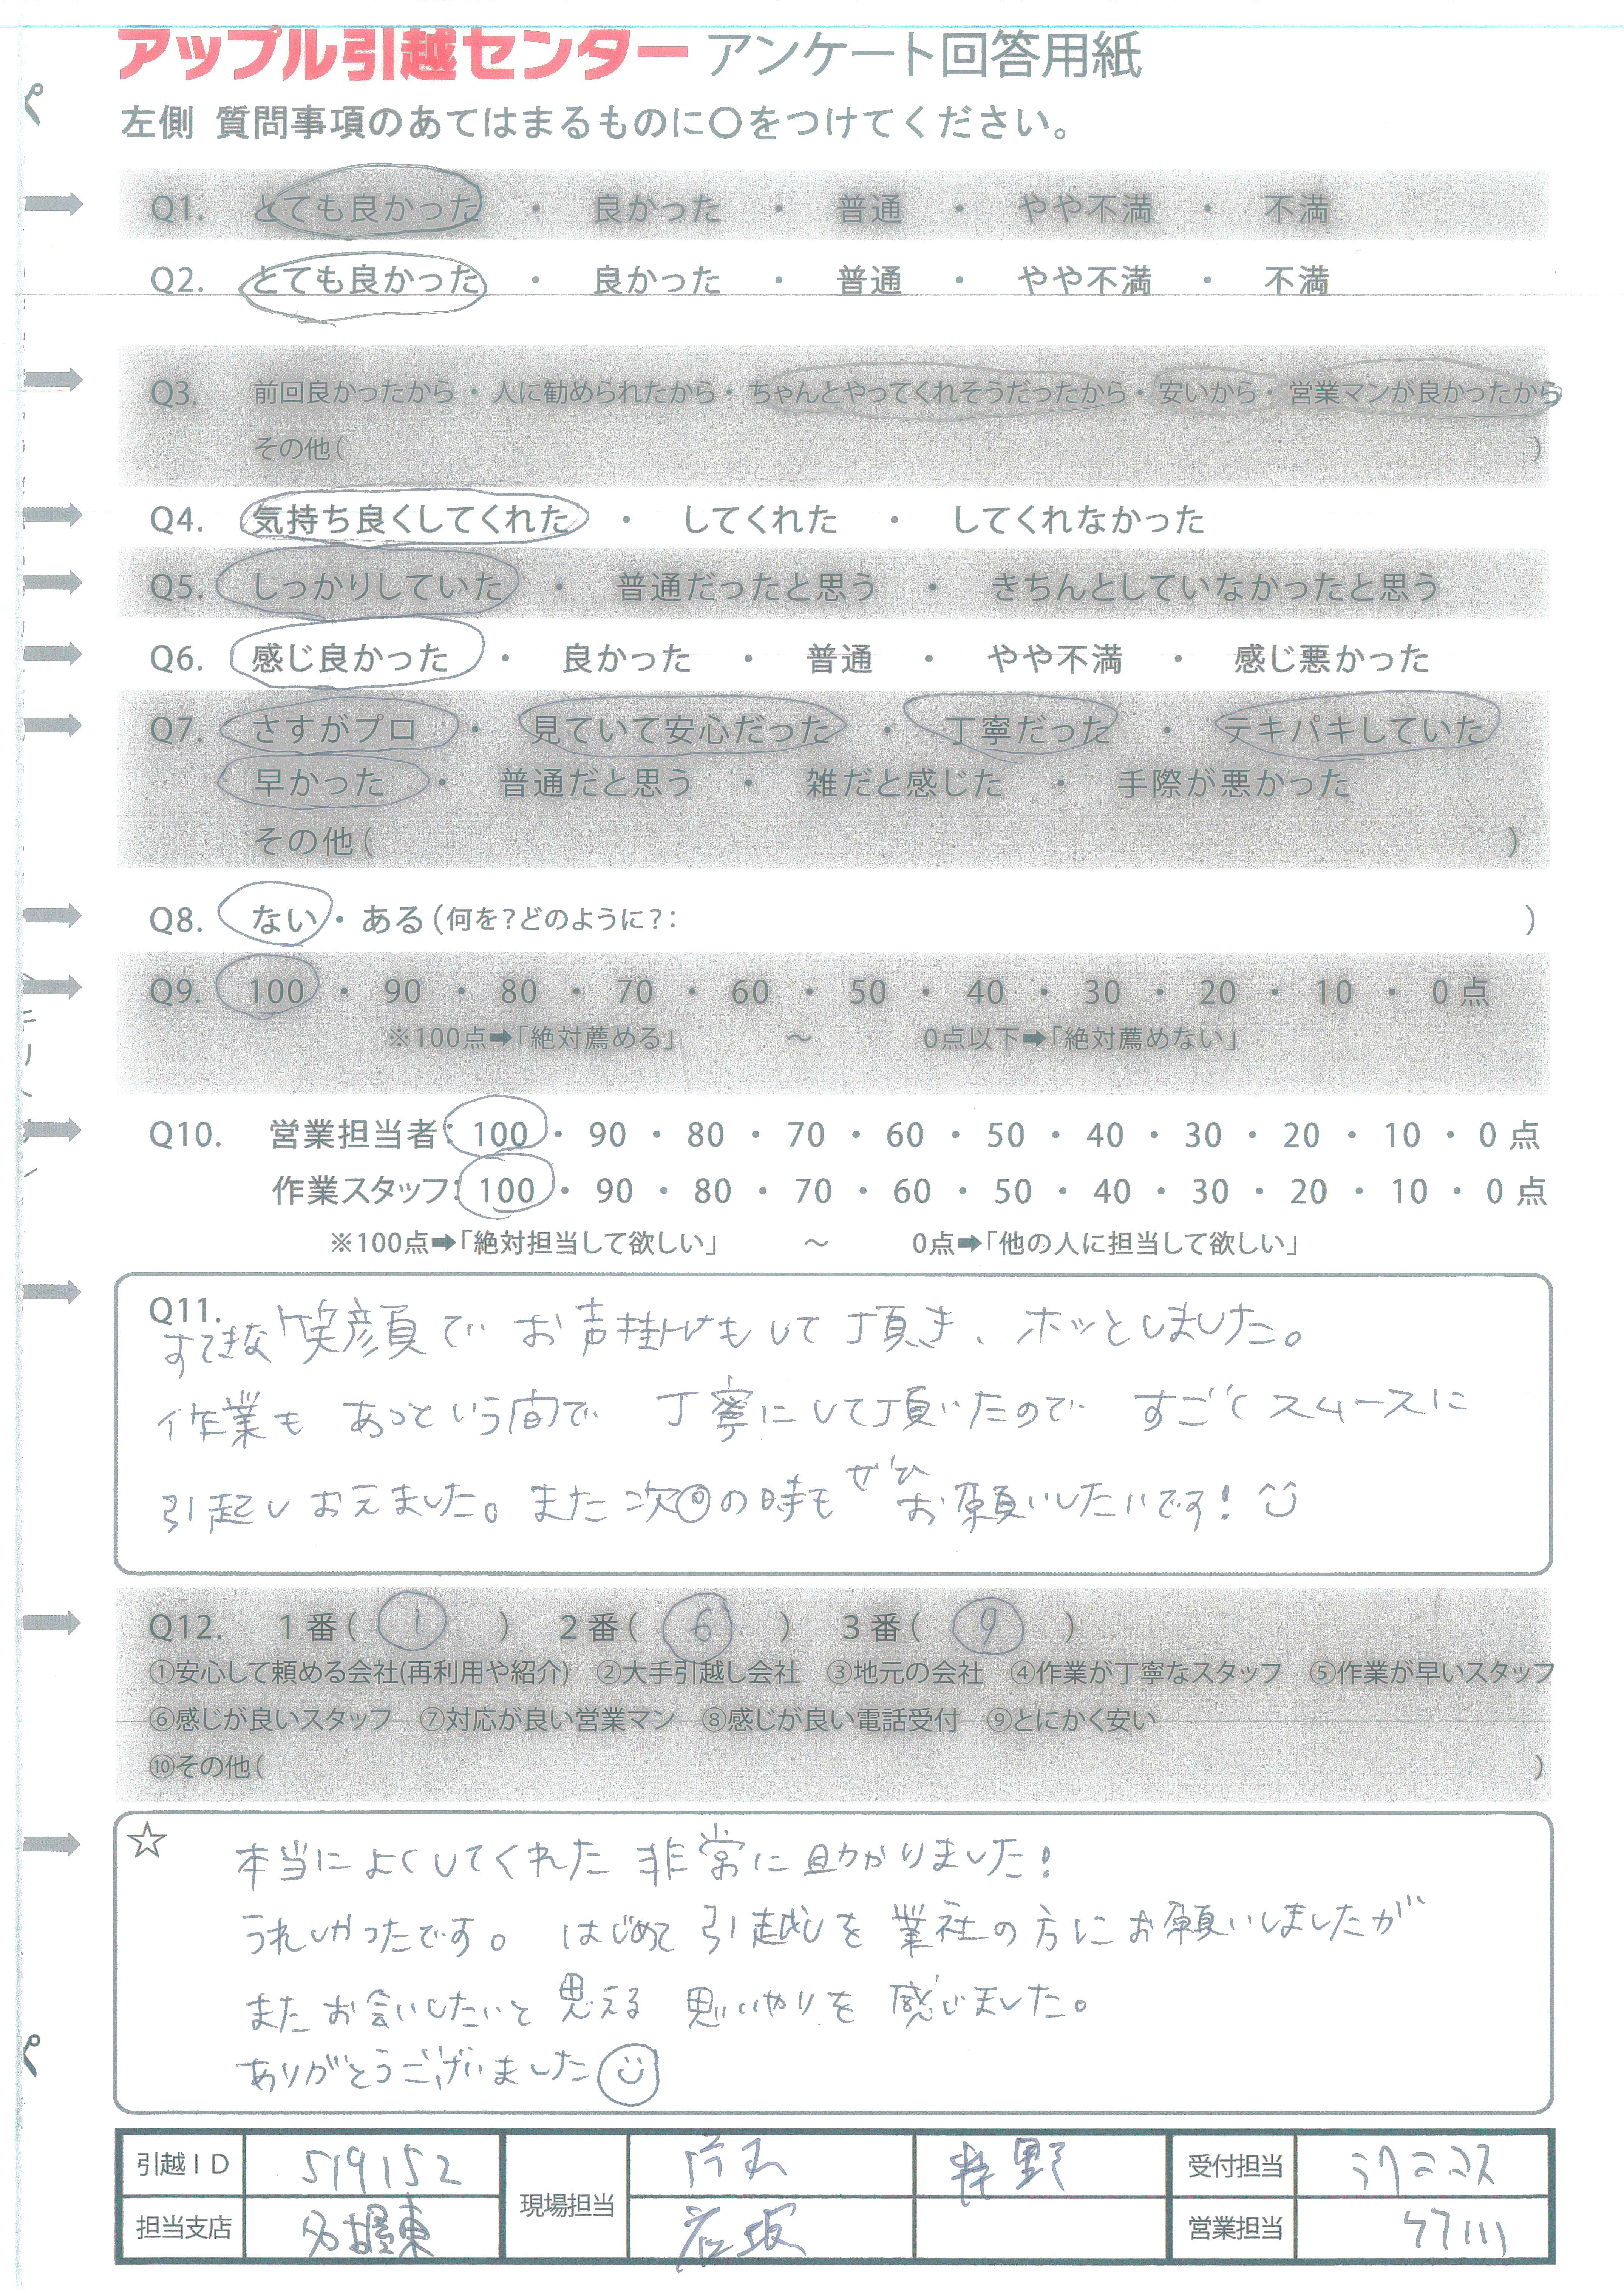 アップル引越センター アンケート回答用紙
左側 質問事項のあてはまるものに〇をつけてください。
Q1. とても良かった ・ 良かった ・ 普通 ・ やや不満 ・ 不満
Q2. とても良かった ・ 良かった ・ 普通 ・ やや不満 ・ 不満
Q3. 前回良かったから ・ 人に勧められたから ・ ちゃんとやってくれそうだったから ・ 安いから ・ 営業マンが良かったから
その他( )
Q4. 気持ち良くしてくれた ・ してくれた ・ してくれなかった
Q5. しっかりしていた ・ 普通だったと思う ・ きちんとしていなかったと思う
Q6. 感じ良かった ・ 良かった ・ 普通 ・ やや不満 ・ 感じ悪かった
Q7. さすがプロ ・ 見ていて安心だった ・ 丁寧だった ・ テキパキしていた
早かった ・ 普通だと思う ・ 雑だと感じた ・ 手際が悪かった
その他( )
Q8. ない ・ ある(何を?どのように?: )
Q9. 100 ・ 90 ・ 80 ・ 70 ・ 60 ・ 50 ・ 40 ・ 30 ・ 20 ・ 10 ・ 0点
※100点➡「絶対薦める」 ～ 0点以下➡「絶対薦めない」
Q10. 営業担当者: 100 ・ 90 ・ 80 ・ 70 ・ 60 ・ 50 ・ 40 ・ 30 ・ 20 ・ 10 ・ 0点
作業スタッフ: 100 ・ 90 ・ 80 ・ 70 ・ 60 ・ 50 ・ 40 ・ 30 ・ 20 ・ 10 ・ 0点
※100点➡「絶対担当して欲しい」 ～ 0点➡「他の人に担当して欲しい」
Q11.
すてきな笑顔で お声掛けもして頂き、ホッとしました。
作業も あっという間で 丁寧にして頂いたので すごくスムースに
引起しおえました。また次回の時もぜひお願いしたいです!
Q12. 1番( 1 ) 2番( 6 ) 3番( 9 )
①安心して頼める会社(再利用や紹介) ②大手引越し会社 ③地元の会社 ④作業が丁寧なスタッフ ⑤作業が早いスタッフ
⑥感じが良いスタッフ ⑦対応が良い営業マン ⑧感じが良い電話受付 ⑨とにかく安い
⑩その他( )
☆
本当によくしてくれた 非常に助かりました!
うれしかったです。はじめて引越しを業社の方にお願いしましたが
またお会いしたいと思える 思いやりを感じました。
ありがとうございました
引越ID 519152 現場担当 片山 受付担当
担当支店 名古屋東 岩坂 営業担当